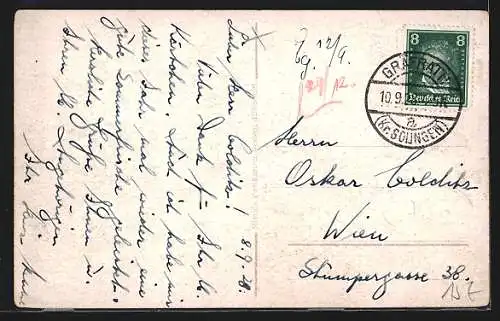 8.9.28.
Lieber Herr Colditz!
Vielen Dank f. Ihr l.
Kärtchen. Auch ich habe mir
dies Jahr mal wieder eine
gute Sommerfrische geleistet.
Herzliche Grüße Ihnen u.
Ihren l. Angehörigen
Ihr
12/9.
12.
8
Deutsches Reich
GRÄFRATH
10.9.
a
(Kr. SOLINGEN)
Herrn
Oskar Colditz
Wien
Stumpergasse 38.